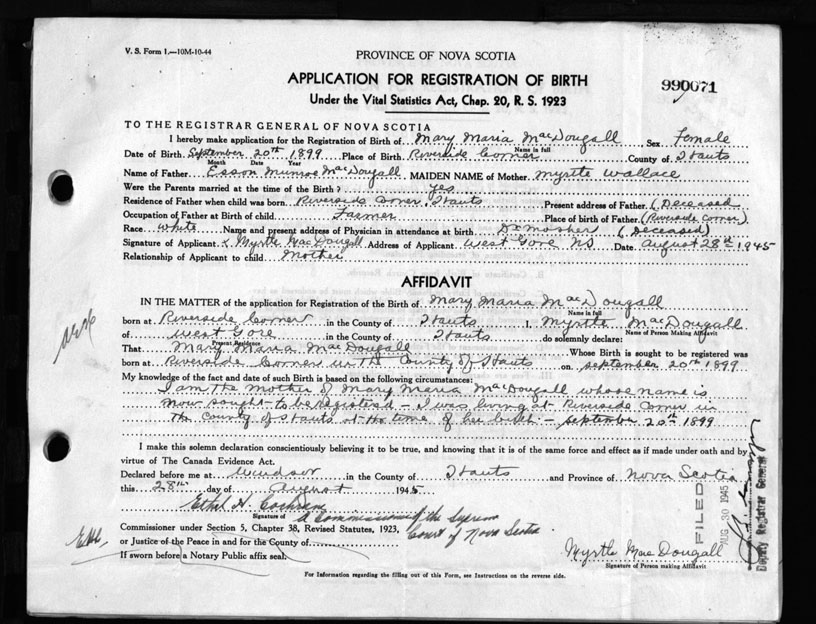 V. S. Form 1.—10M-10-44
PROVINCE OF NOVA SCOTIA
APPLICATION FOR REGISTRATION OF BIRTH
990071
Under the Vital Statistics Act, Chap. 20, R. S. 1923
TO THE REGISTRAR GENERAL OF NOVA SCOTIA
I hereby make application for the Registration of Birth of Mary Maria MacDougall, Sex Female
Name in full
Date of Birth September 20th 1899 Place of Birth Riverside Corner County of Hants
Month Date Year
Name of Father Esson Munroe MacDougall MAIDEN NAME of Mother Myrtle Wallace
Were the Parents married at the time of the Birth? yes
Residence of Father when child was born Riverside Corner, Hants Present address of Father (Deceased)
Occupation of Father at Birth of child Farmer Place of birth of Father (Riverside Corner)
Race White Name and present address of Physician in attendance at birth Dr Mosher (Deceased)
Signature of Applicant x Myrtle MacDougall Address of Applicant West Gore NS Date August 28th 1945
Relationship of Applicant to child Mother
AFFIDAVIT
IN THE MATTER of the application for Registration of the Birth of Mary Maria MacDougall
Name in full
born at Riverside Corner in the County of Hants I, Myrtle MacDougall
Name of Person Making Affidavit
of West Gore in the County of Hants do solemnly declare:
Present Residence
That Mary Maria MacDougall Whose Birth is sought to be registered was
born at Riverside Corner in the County of Hants on September 20th 1899
My knowledge of the fact and date of such Birth is based on the following circumstances:
I am the mother of Mary Maria MacDougall whose name is
now sought to be registered - I was living at Riverside Corner in
the County of Hants at the time of her birth - September 20th 1899
I make this solemn declaration conscientiously believing it to be true, and knowing that it is of the same force and effect as if made under oath and by
virtue of The Canada Evidence Act.
Declared before me at Windsor in the County of Hants and Province of Nova Scotia
this 28th day of August 1945
Ethel H. Cochran
Signature of
A Commissioner of the Supreme
Court of Nova Scotia
Commissioner under Section 5, Chapter 38, Revised Statutes, 1923,
or Justice of the Peace in and for the County of
If sworn before a Notary Public affix seal.
Myrtle MacDougall
Signature of Person making Affidavit
For Information regarding the filling out of this Form, see Instructions on the reverse side.
FILED
AUG 30 1945
Deputy Registrar General